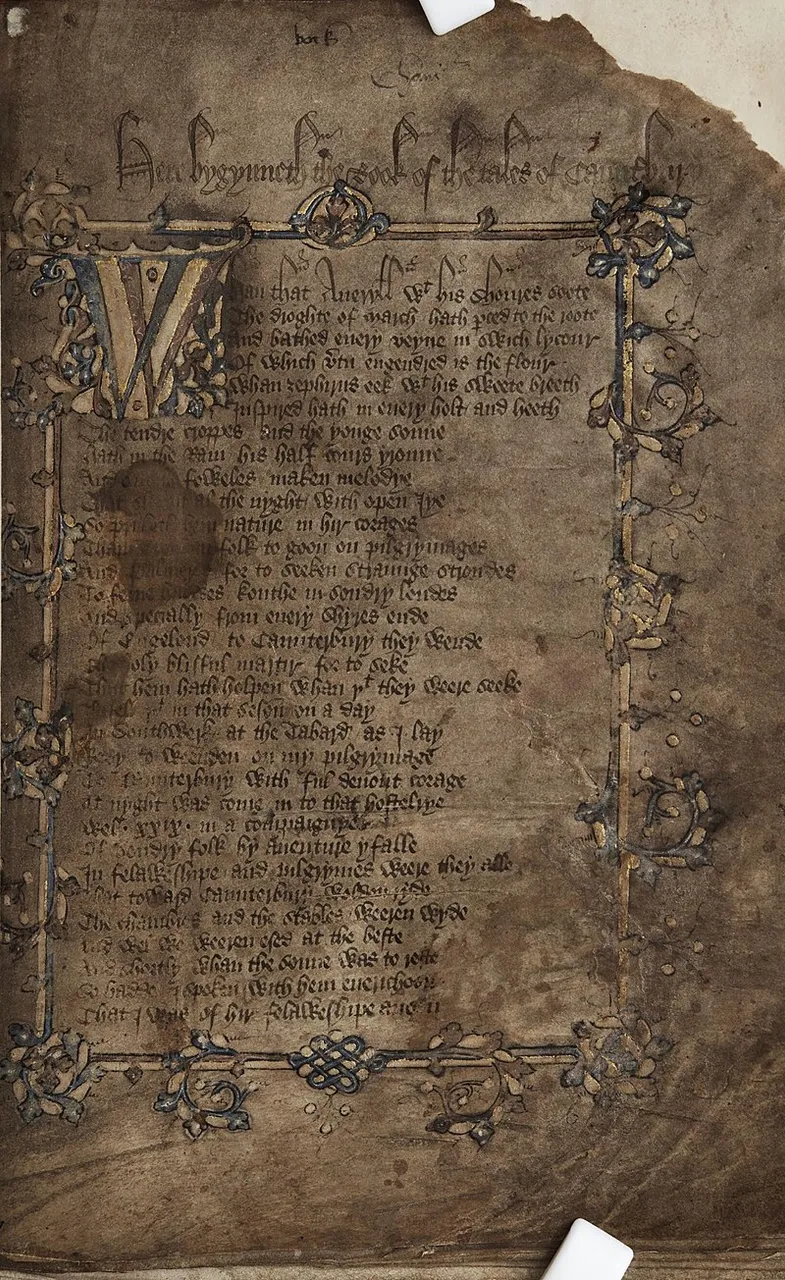 book
Here bygynneth the Book of the tales of Caunterbury
Whan that Aueryll wt his shoures soote
The droghte of march hath pced to the roote
And bathed euery veyne in swich lycour
Of which vtu engendred is the flour
Whan zephirus eek wt his sweete breeth
Inspired hath in euery holt and heeth
The tendre croppes and the yonge sonne
hath in the Ram his half cours yronne
And foweles maken melodye
That al the nyght with open Iye
So nature in hir corages
folk to goon on pilgrymages
And for to seeken straunge strondes
To ferne kouthe in sondry londes
And specially from euery shyres ende
Of Engelond to Caunterbury they wende
The holy blisful martir for to seke
That hem hath holpen whan yt they weere seeke
yt in that seson on a day
In Southwerk at the Tabard as I lay
Redy to weenden on my pilgrymage
To Caunterbury with ful deuout corage
At nyght was come in to that hostelrye
wel xxix in a compaignye
Of sondry folk by auenture yfalle
In felaweshipe and pilgrymes weere they alle
That toward Caunterbury wolden ryde
The chambres and the stables weeren wyde
And wel we weeren esed at the beste
And shortly whan the sonne was to reste
So hadde I spoken with hem euerichon
That I was of hir felaweshipe anon